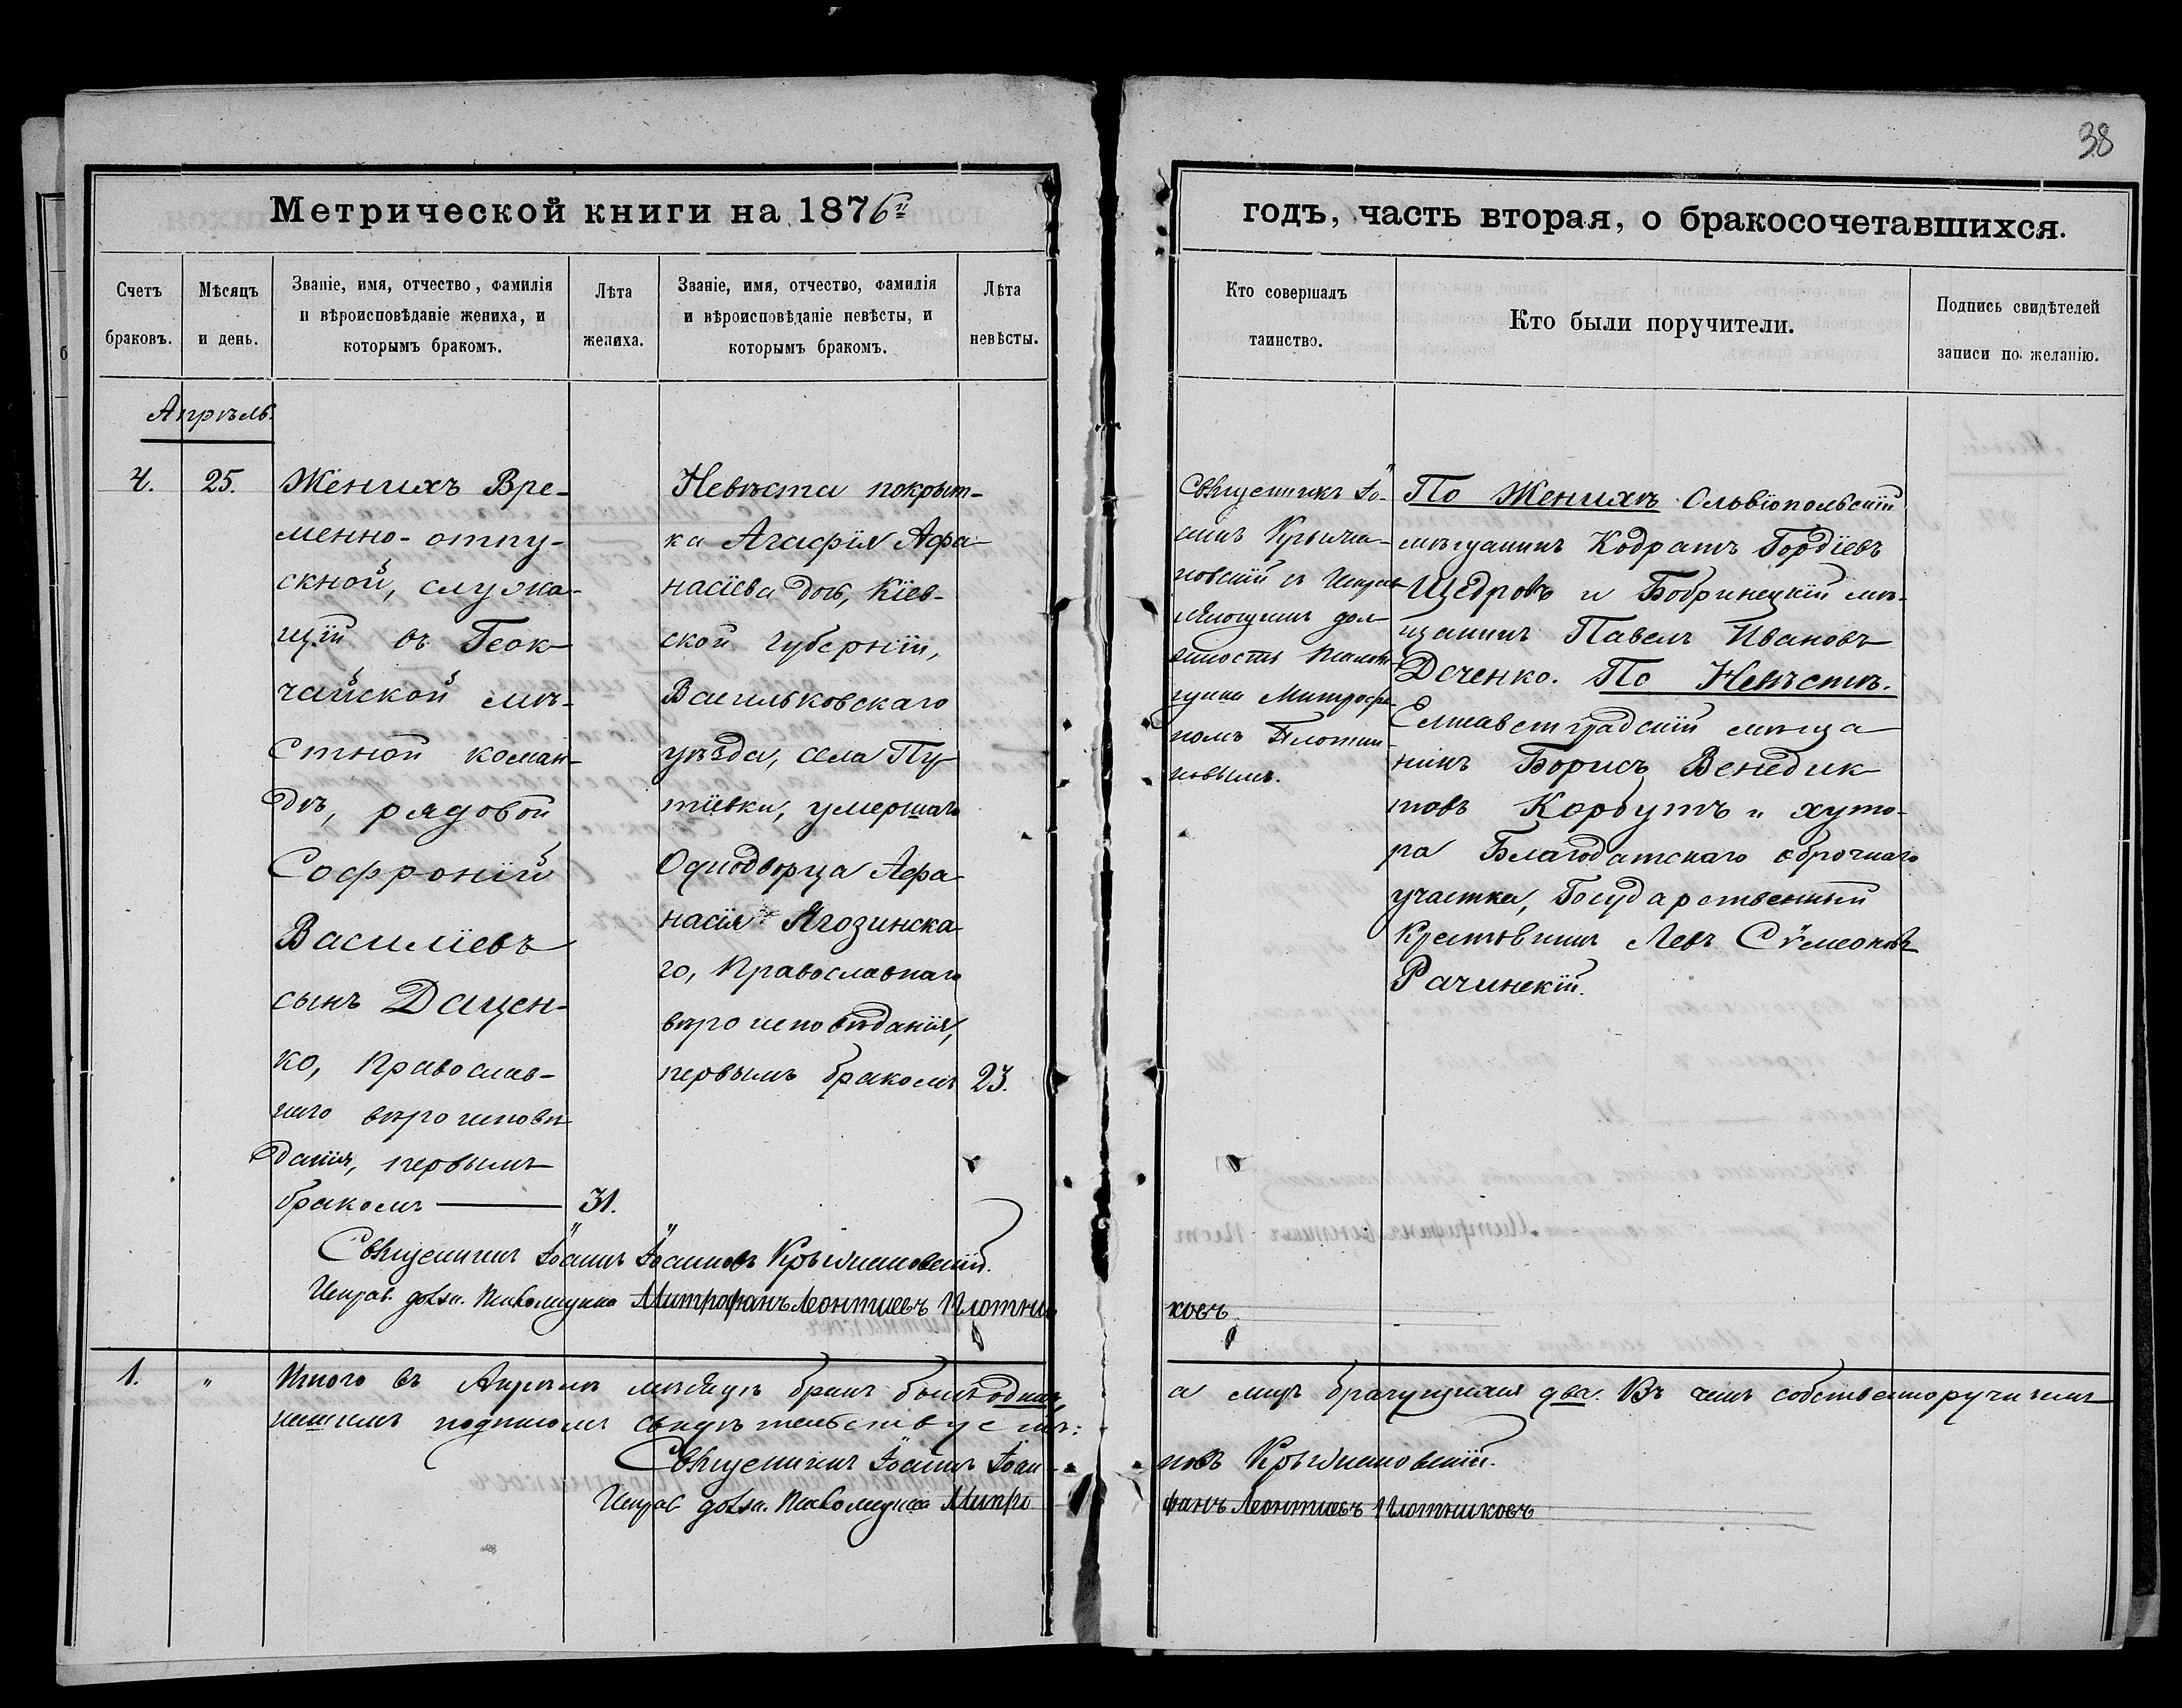 38
Метрической книги на 1876й
годъ, часть вторая, о бракосочетавшихся.
Счетъ
браковъ.
Мѣсяцъ
и день.
Званіе, имя, отчество, фамилія
и вѣроисповѣданіе жениха, и
которымъ бракомъ.
Лѣта
жениха.
Званіе, имя, отчество, фамилія
и вѣроисповѣданіе невѣсты, и
которымъ бракомъ.
Лѣта
невѣсты.
Кто совершалъ
таинство.
Кто были поручители.
Подпись свидѣтелей
записи по желанію.
Апрѣль.
4.
25.
Женихъ Вре-
менно-отпу-
скной, служа-
щій въ Геок-
чайской мѣ-
стной коман-
дѣ, рядовой
Софроній
Василіевъ
сынъ Дацен-
ко, Православ-
наго вѣроисповѣ
данія, первымъ
бракомъ
31.
Невѣста покрыт-
ка Агафія Афа-
насіева дочь, Кіев-
ской губерніи,
Васильковскаго
уѣзда, села Пу-
тіевки, умершаго
Однодворца Афа-
насія Ягозинска
го, Православнаго
вѣроисповѣданія,
первымъ бракомъ
23.
Священникъ Іо-
аннъ
новскій съ Исправ-
ляющимъ дол-
жность Псалом-
щика Митрофа-
номъ Плотни-
ковымъ.
По Женихѣ Ольвіопольскій
мѣщанинъ Кодратъ Гордіевъ
Щедровъ и Бобринецкій мѣ-
щанинъ Павелъ Ивановъ
Деченко. По Невѣстѣ.
Елисаветградскій мѣща
нинъ Борисъ Венедик
товъ Корбутъ и хуто-
ра Благодатскаго оброчнаго
участка, Государственный
Крестьянинъ Левъ Сѵмеоновъ
Рачинскій.
Священникъ Іоаннъ Іоанновъ Крыжановскій.
Исправ. должн. Псаломщика Митрофанъ Леонтиевъ Плотни
ковъ.
1.
"
Итого въ Апрѣлѣ мѣсяцѣ бракъ былъ одинъ,
а лицъ брачущихся два. Въ чемъ собственноручнымъ
нашимъ подписомъ свидѣтельствуемъ:
Священникъ Іоаннъ Іоан-
новъ Крыжановскій.
Исправ. должн. Псаломщика Митро
фанъ Леонтиевъ Плотниковъ